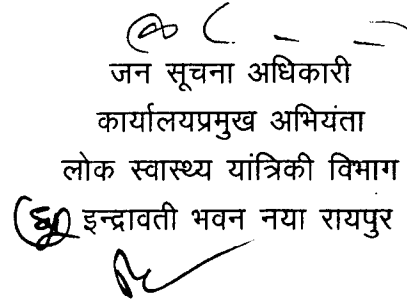 जन सूचना अधिकारी
कार्यालयप्रमुख अभियंता
लोक स्वास्थ्य यांत्रिकी विभाग
इन्द्रावती भवन नया रायपुर